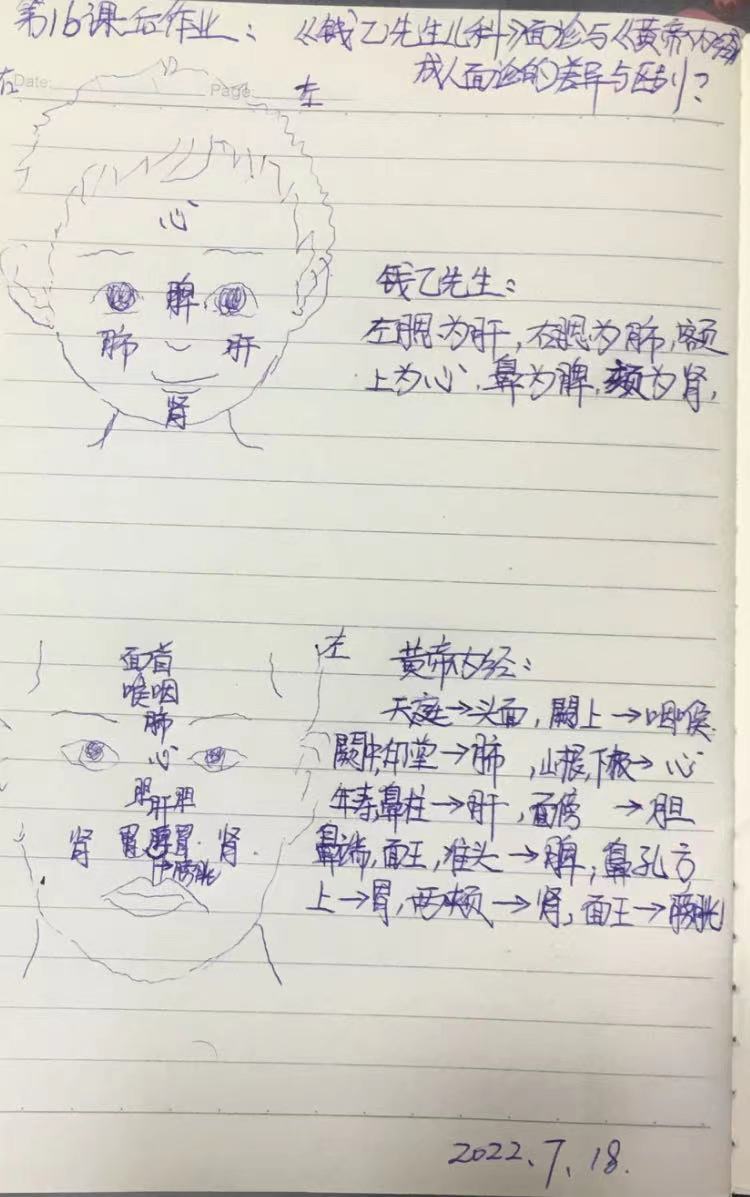 第16课后作业：《钱乙先生儿科》面诊与《黄帝内经》
成人面诊的差异与区别？
右 Date: Page: 左
心
脾
肺 肝
肾
钱乙先生：
左腮为肝，右腮为肺，额
上为心，鼻为脾，颏为肾，
左
面首
喉咽
肺
心
胆 肝 胆
肾 胃 脾 胃 肾
膀胱
黄帝内经：
天庭→头面，阙上→咽喉
阙中，印堂→肺，山根，下极→心
年寿，鼻柱→肝，面傍→胆
鼻端，面王，准头→脾，鼻孔方
上→胃，两颊→肾，面王→膀胱
2022.7.18.